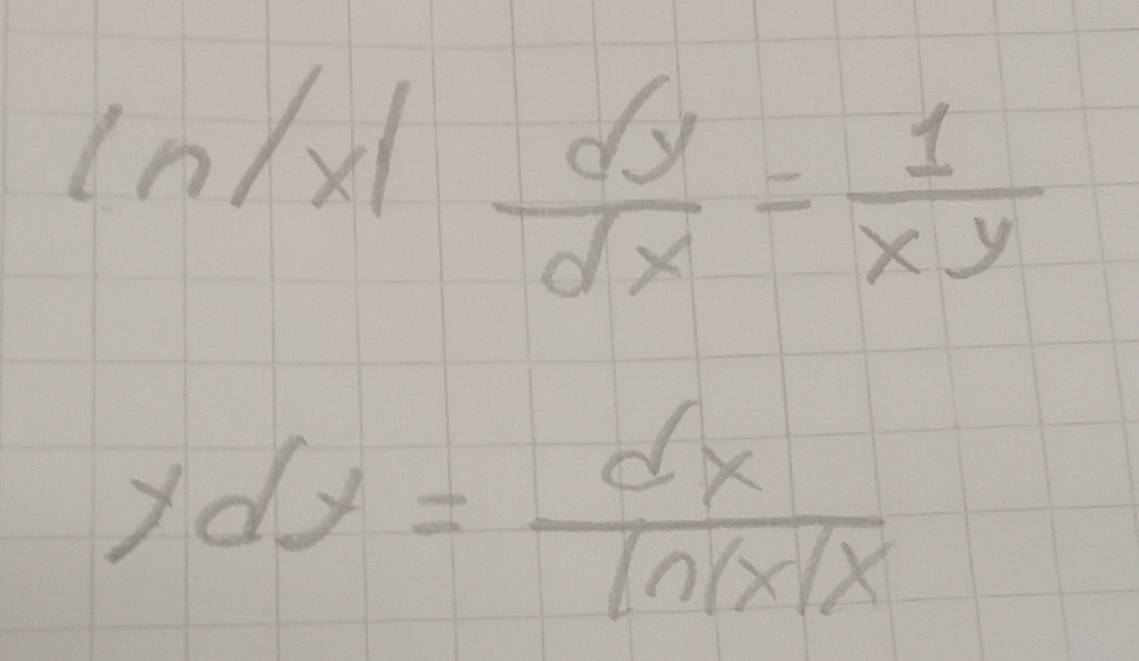 ln|x| dy/dx = 1/xy
ydy = dx/ln|x|x